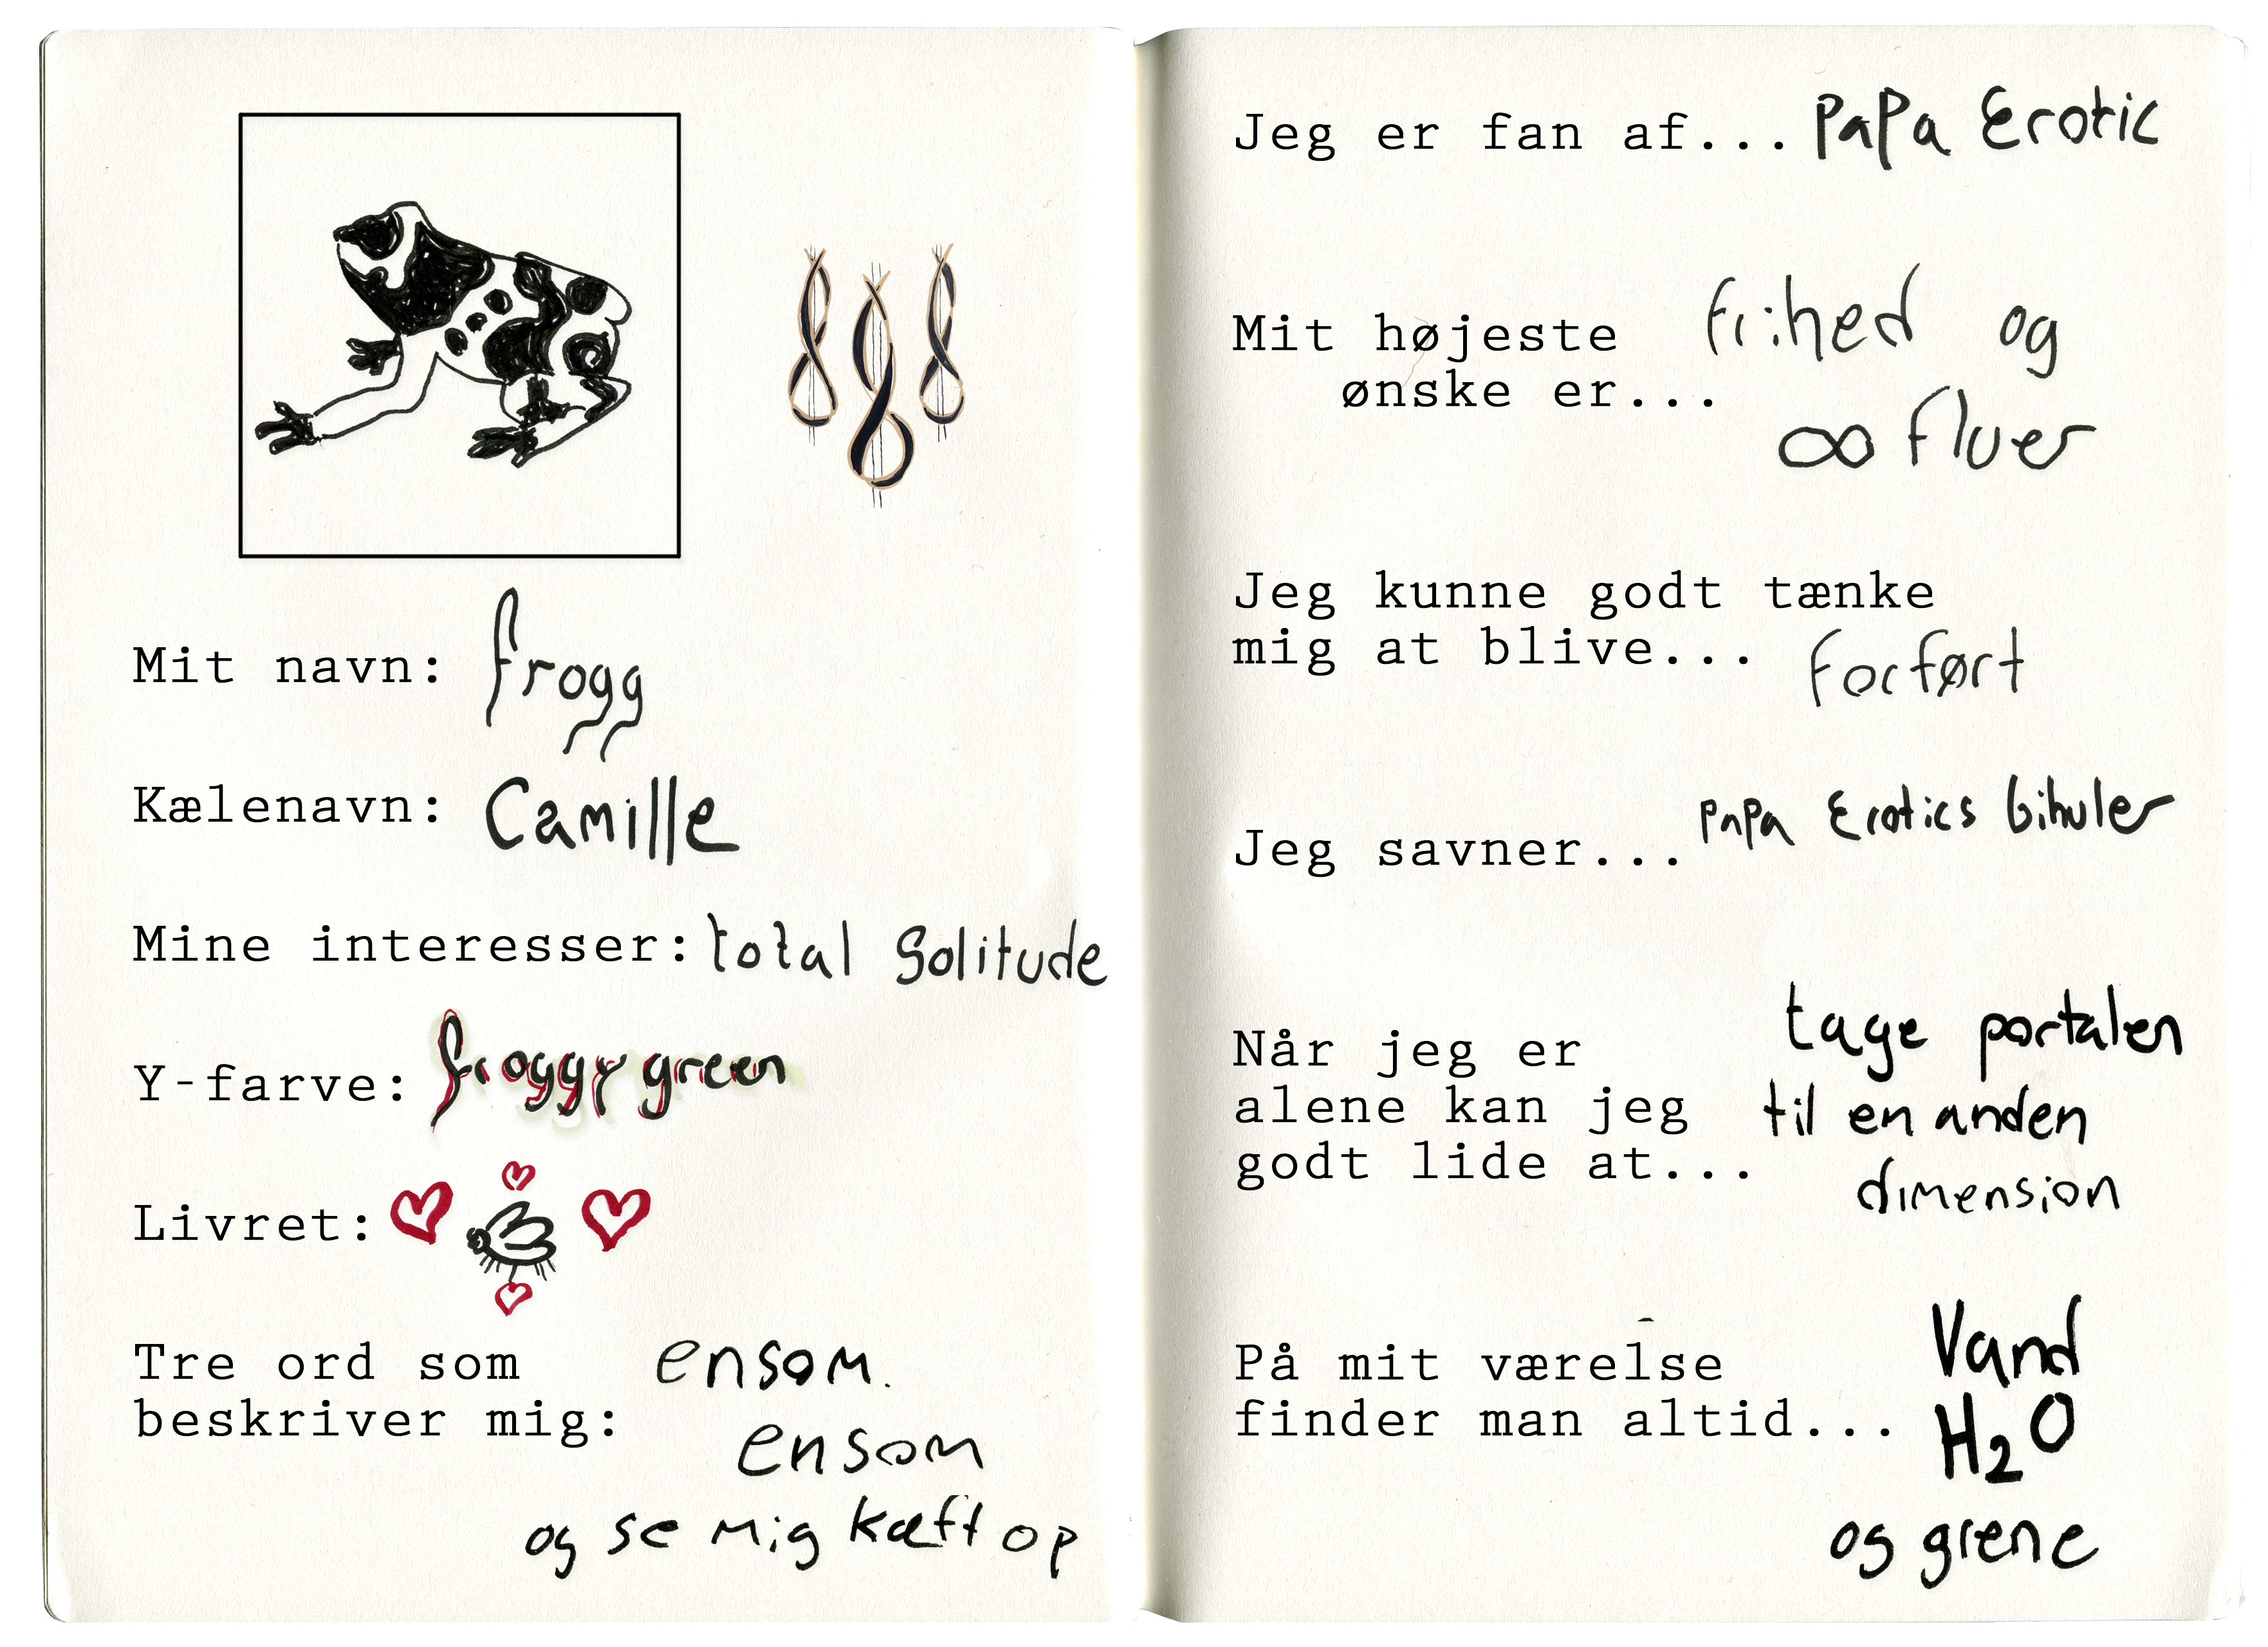 Mit navn: frogg
Kælenavn: Camille
Mine interesser: total Solitude
Y-farve: froggy green
Livret:
Tre ord som
beskriver mig:
ensom.
ensom
og se mig kæft op
Jeg er fan af... PaPa Erotic
Mit højeste
ønske er...
frihed og
∞ fluer
Jeg kunne godt tænke
mig at blive... forført
Jeg savner... PaPa Erotics bihuler
Når jeg er
alene kan jeg
godt lide at...
tage portalen
til en anden
dimension
På mit værelse
finder man altid...
Vand
H₂O
og grene